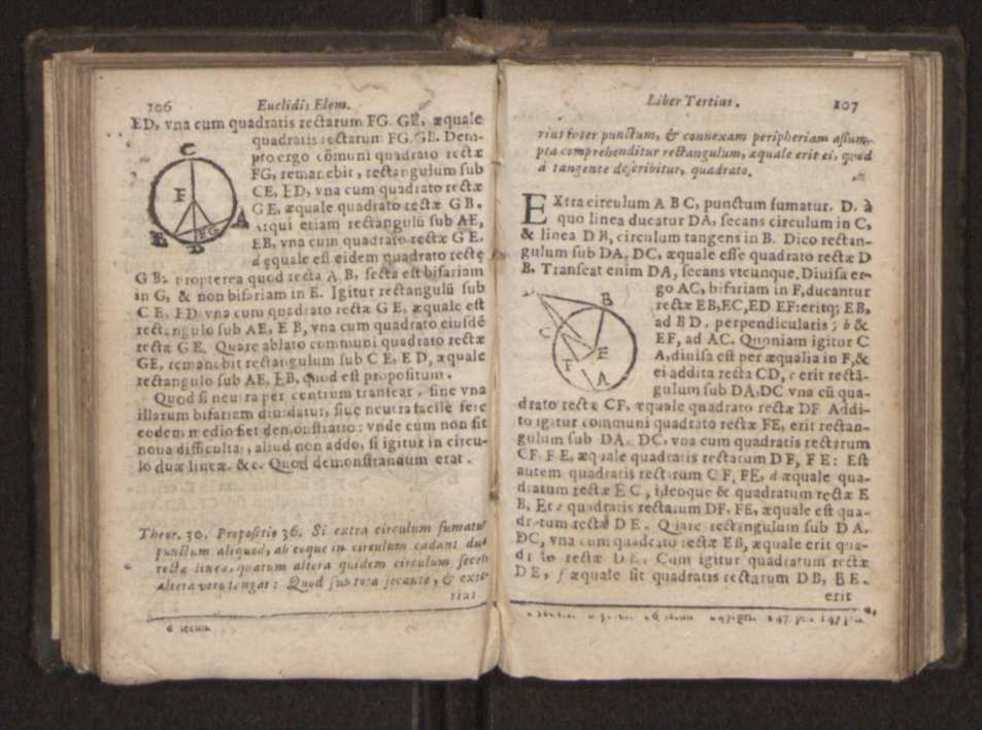 106 Euclidis Elem.
ED, vna cum quadratis rectarum FG. GE, æquale
quadratis rectarum FG. GB. Dem-
pto ergo cōmuni quadrato rectæ
FG, remanebit, rectangulum sub
CE, ED, vna cum quadrato rectæ
GE, æquale quadrato rectæ GB.
atqui etiam rectangulū sub AE,
EB, vna cum quadrato rectæ GE,
æquale est eidem quadrato rectę
GB, propterea quod recta A B, secta est bifariam
in G, & non bifariam in E. Igitur rectangulū sub
C E, ED vna cum quadrato rectæ G E, æquale est
rectangulo sub AE, E B, vna cum quadrato eiusdē
rectæ G E. Quare ablato communi quadrato rectæ
GE, remanebit rectangulum sub C E, E D, æquale
rectangulo sub AE, EB, quod est propositum.
Quod si neutra per centrum transeat, siue vna
illarum bifariam diuidatur, siue neutra facile fere
eodem medio fiet demonstratio: vnde cum non sit
noua difficultas, aliud non addo, si igitur in circu-
lo duæ lineæ. &c. Quod demonstrandum erat.
C
F
A
E
G
D
Theor. 30. Propositio 36. Si extra circulum sumatur
punctum aliquod, ab eoque in circulum cadant duæ
rectæ lineæ, quarum altera quidem circulum secet
altera vero tangat: Quod sub tota secante, & exte-
rius
Liber Tertius. 107
rius inter punctum, & connexam peripheriam assum-
pta comprehenditur rectangulum, æquale erit ei, quod
à tangente describitur, quadrato.
EXtra circulum A B C, punctum sumatur. D. à
quo linea ducatur DA, secans circulum in C,
& linea D B, circulum tangens in B. Dico rectan-
gulum sub DA, DC, æquale esse quadrato rectæ D
B. Transeat enim DA, secans vtcunque. Diuisa er-
go AC, bifariam in F, ducantur
rectæ EB, EC, ED EF: eritq; EB,
ad B D. perpendicularis; b &
EF, ad AC. Quoniam igitur C
A, diuisa est per æqualia in F, &
ei addita recta CD, c erit rectā-
gulum sub DA, DC vna cū qua-
drato rectæ CF, æquale quadrato rectæ DF Addi-
to igitur communi quadrato rectæ FE, erit rectan-
gulum sub DA. DC, vna cum quadratis rectarum
CF. FE, æquale quadratis rectarum DF, FE: Est
autem quadratis rectarum CF, FE, d æquale qua-
dratum rectæ E C, ideoque & quadratum rectæ E
B. Et e quadratis rectarum DF. FE, æquale est qua-
dratum rectæ D E. Quare rectangulum sub D A.
DC, vna cum quadrato rectæ EB, æquale erit qua-
drato rectæ D E. Cum igitur quadratum rectæ
D E, f æquale sit quadratis rectarum D B, B E.
erit
B
C
E
F
A